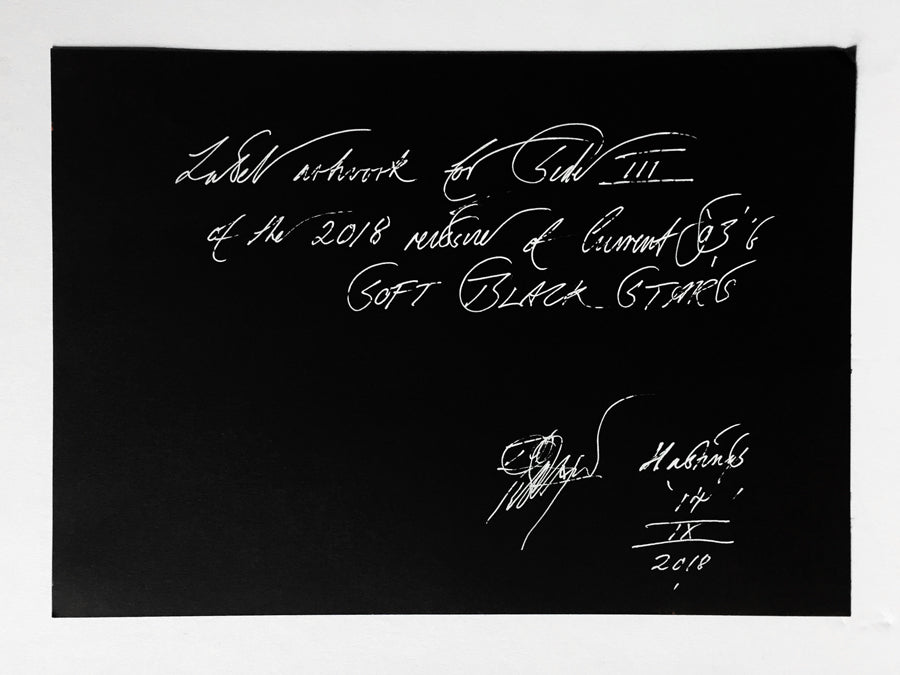 Label artwork for Side III
of the 2018 reissue of Current 93's
SOFT BLACK STARS
Hastings
IX
2018